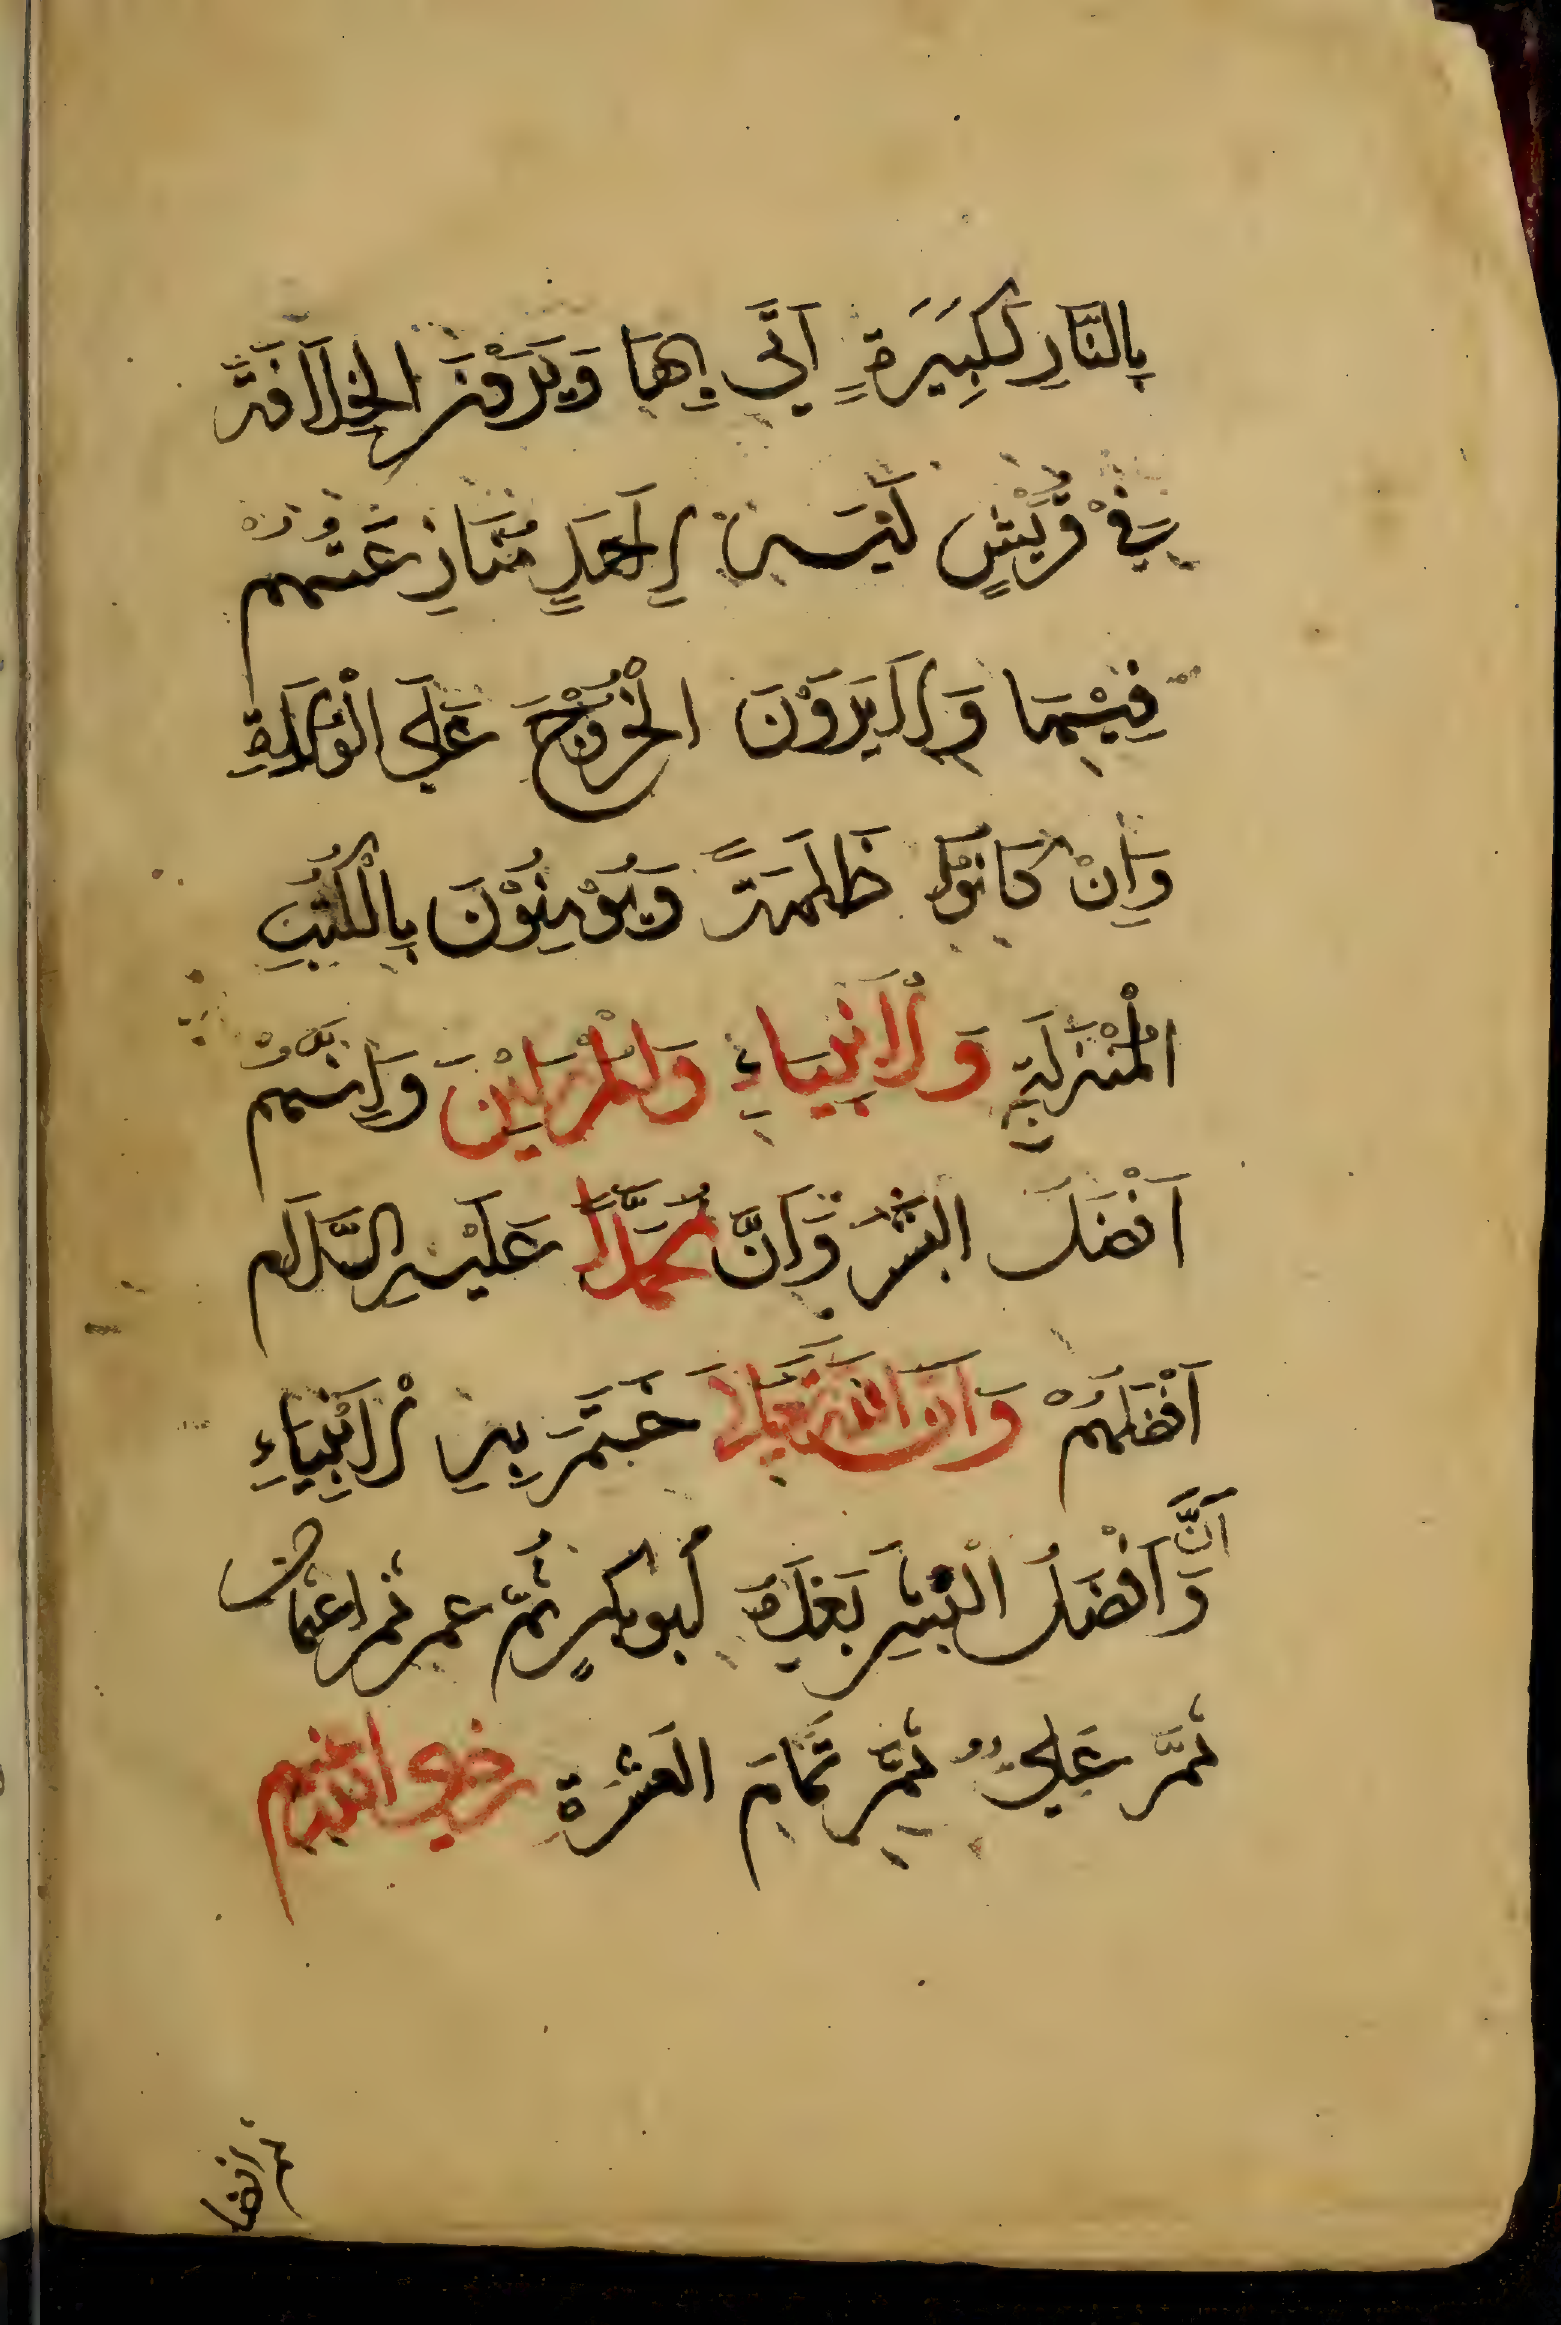 بِالنَّارِ لِكَبِيَرةٍ اَتَي بِهَا وَيَرَوْنَ الْخِلَافَةَ
فِيْ قُرَيْشٍ لَيْسَ لِاَحَدٍ مُنَازِعَتُهُمْ
فِيْهَا وَلَا يَرَوْنَ الْخُرُوْجَ عَلَي الْوُلَاةِ
وَاِنْ كَانُوْا ظَلَمَةً وَيُوْمِنُوْنَ بِالْكُتُبِ
الْمُنْزَلَةِ وَالْاَنْبِيَاءِ وَالْمُرْسَلِيْنَ وَاِنَّهُمْ
اَفْضَلُ الْبَشَرِ وَاَنَّ مُحَمَّدًا عَلَيْهِ السَّلَام
اَفْضَلُهُمْ وَاَنَّ اللّٰهَ تَعَالَي خَتَمَ بِهِ الْاَنْبِيَاءِ
وَاَنَّ اَفْضَلُ الْبَشَرِ بَعْدَهُ اَبُو بكرٍ ثُمَّ عمر ثم عثمان
ثمَّ عَلِيٌّ ثمَّ تَمَامَ الْعَشَرَةِ رضي الله عنهم
ثم افضل